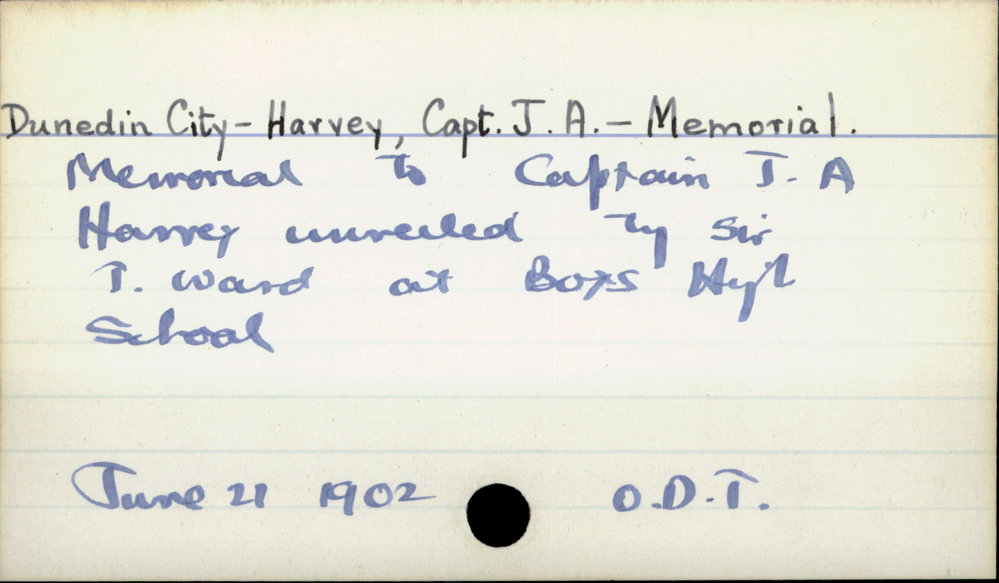 Dunedin City - Harvey, Capt. J. A. - Memorial.
Memorial to Captain J. A
Harvey unveiled by Sir
J. Ward at Boys High
School
June 21 1902 O.D.T.